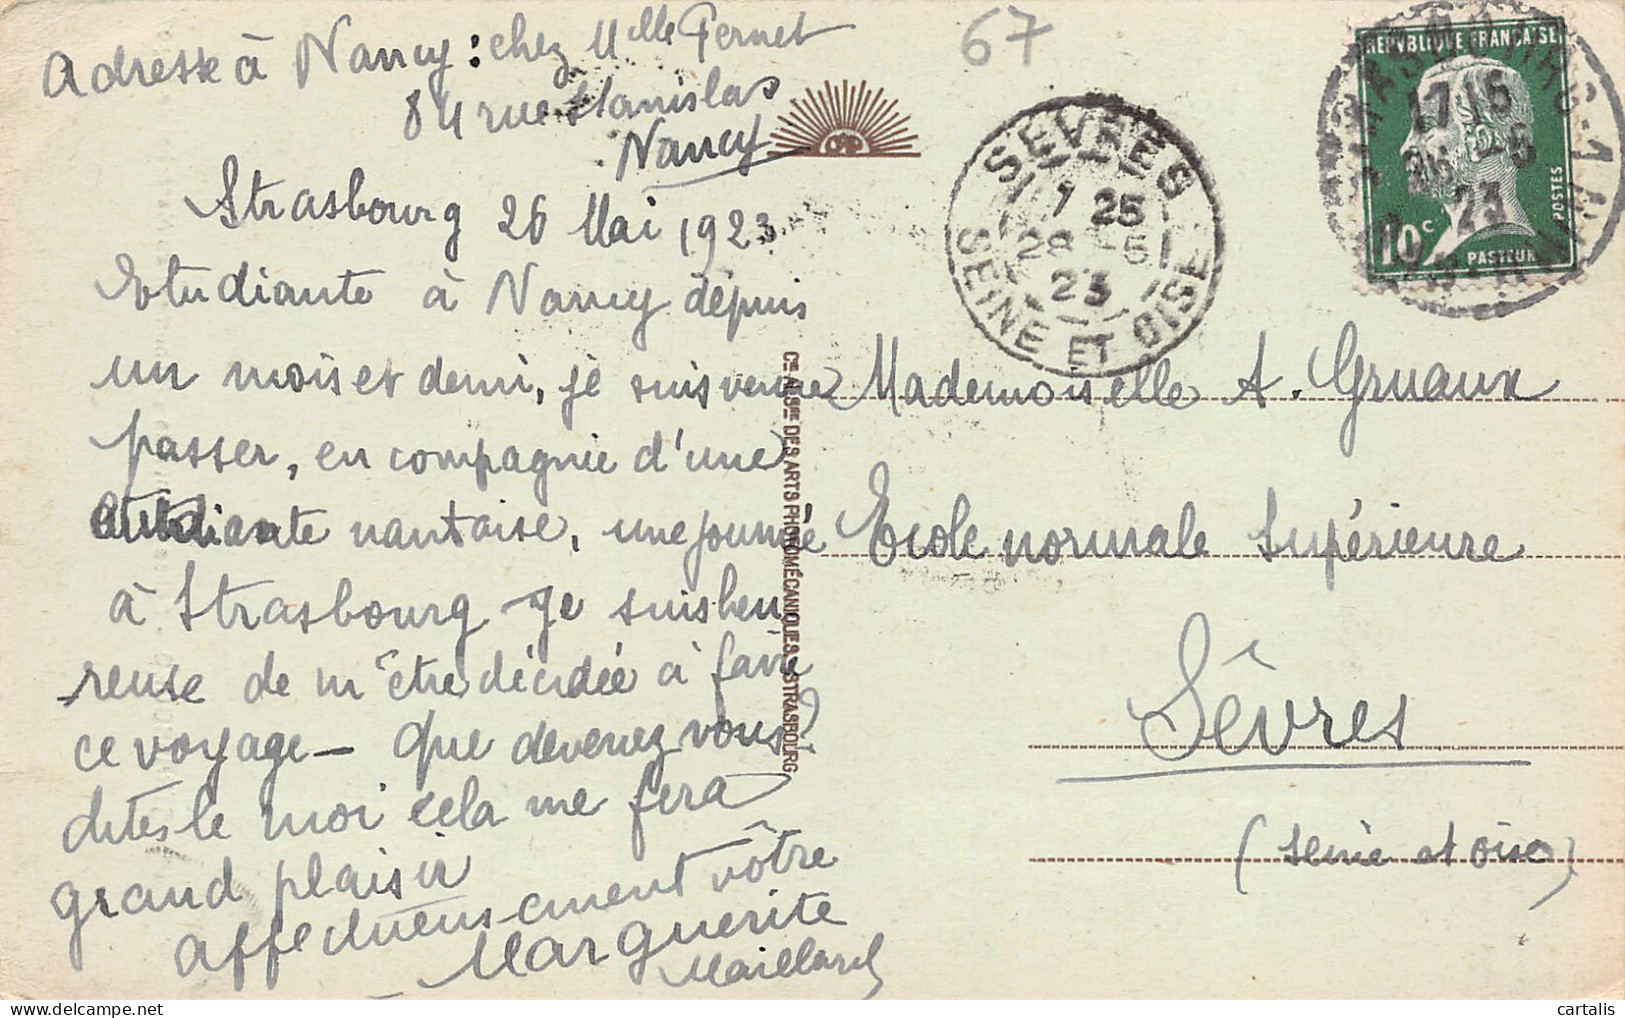 Adresse à Nancy : chez Melle Pernet
84 rue Stanislas
Nancy
67
Strasbourg 26 Mai 1923
Etudiante à Nancy depuis
un mois et demi, je suis venue
passer, en compagnie d'une
étudiante nantaise, une journée
à Strasbourg Je suis heu
reuse de m'être décidée à faire
ce voyage – Que devenez vous?
dites le moi cela me fera
grand plaisir
affectueusement vôtre
Marguerite
Maillard
Cie ALSnne DES ARTS PHOTOMÉCANIQUES, STRASBOURG
SEVRES
7 25
28 -5
23
SEINE ET OISE
REPVBLIQVE FRANÇAISE
POSTES
10c
PASTEUR
STRASBOURG-1
1715
26 -5
23
Mademoiselle A. Gruaux
Ecole normale Supérieure
Sêvres
(Seine et Oise)
cartalis